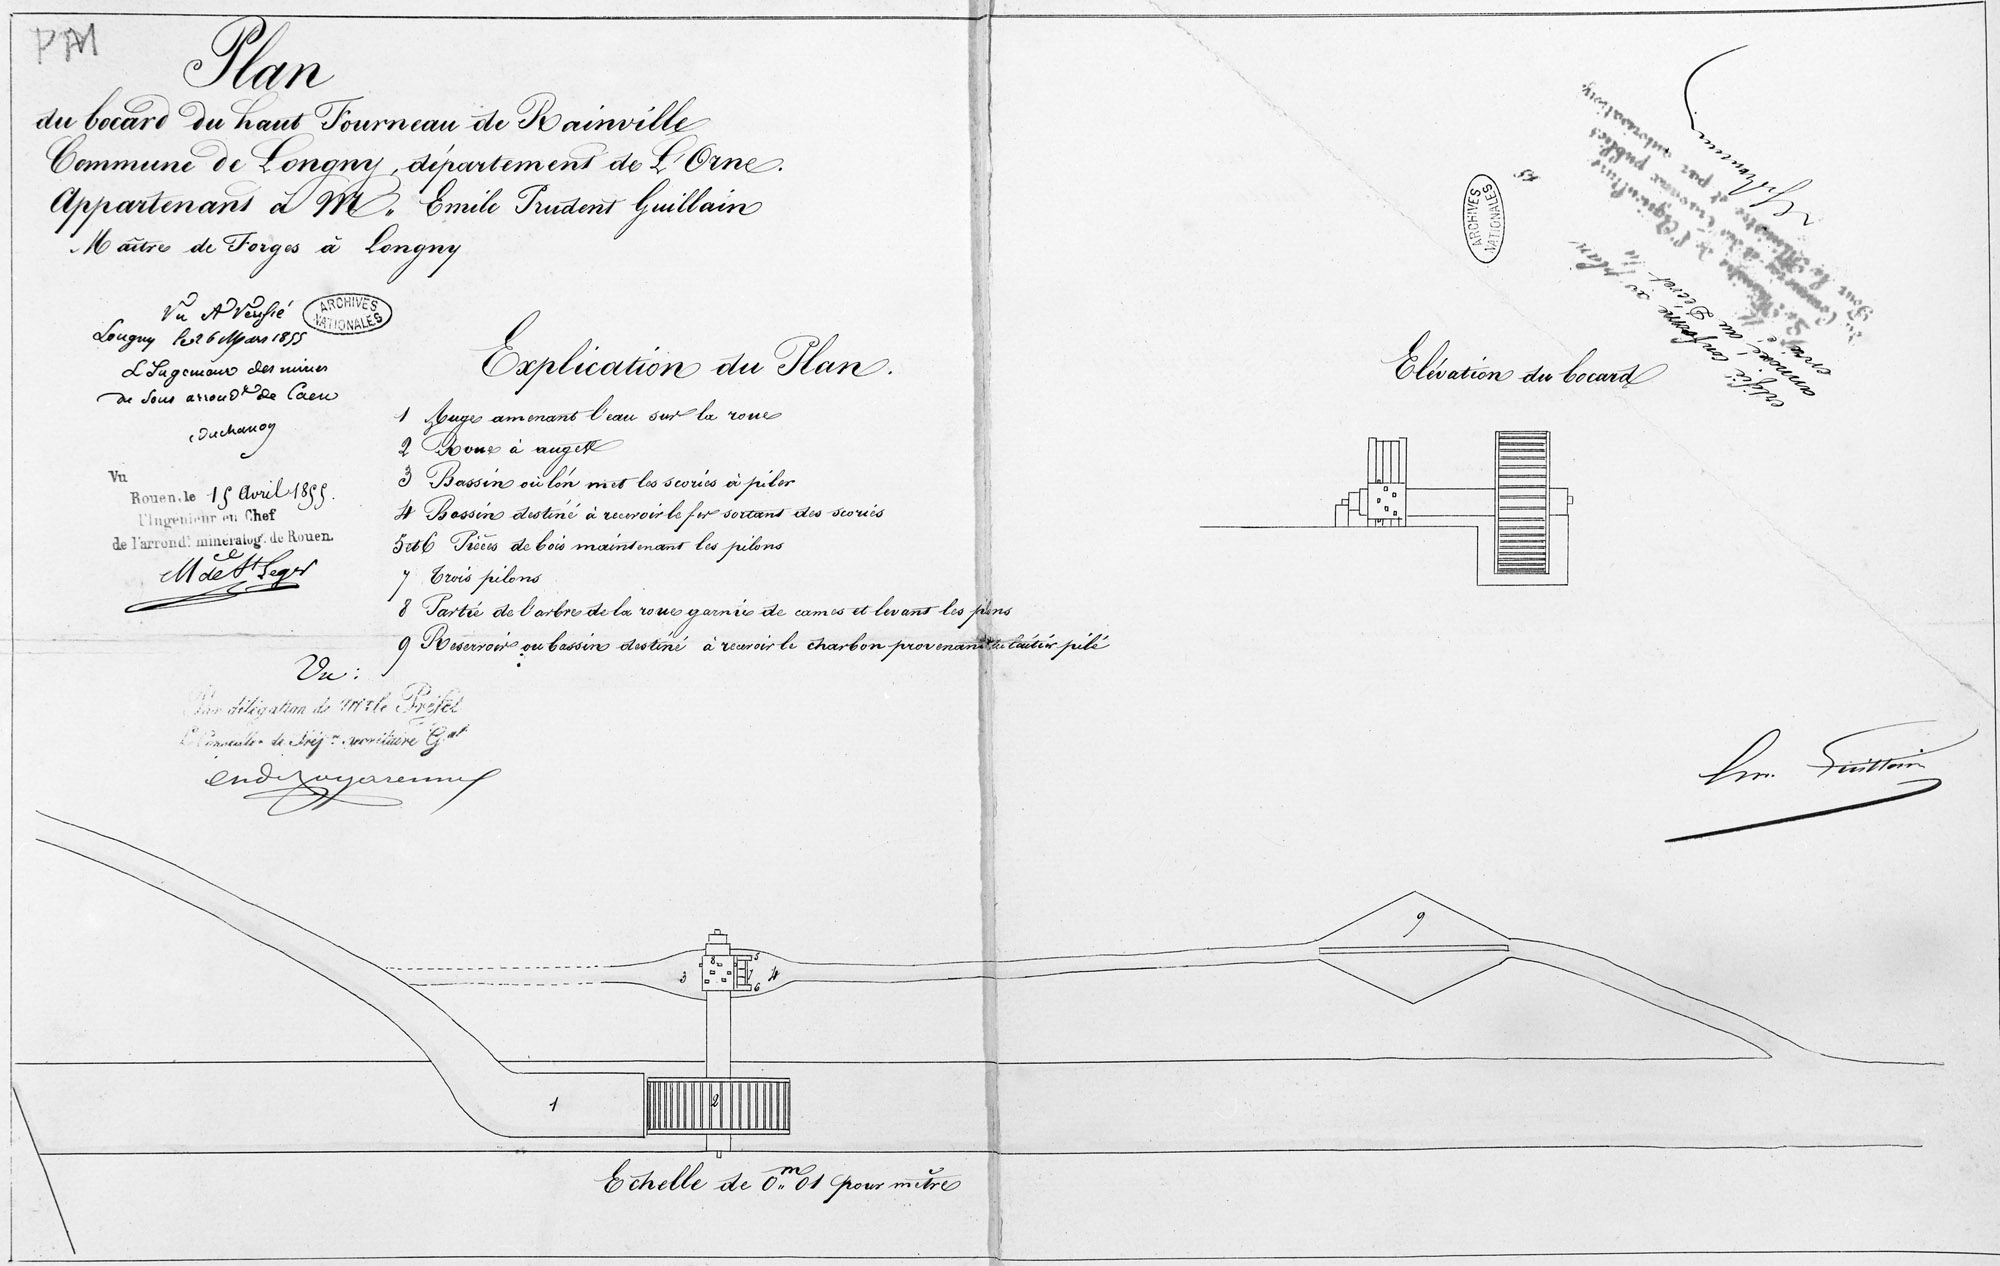 PM
Plan
du bocard du haut Fourneau de Rainville
Commune de Longny, département de L'Orne.
Appartenant à M. Emile Prudent Guillain
Maître de Forges à Longny
Vu et Vérifié
Longny le 26 Mars 1855
L'Ingénieur des mines
du sous arrondt de Caen
Duchanoy
ARCHIVES
NATIONALES
Vu
Rouen, le 15 Avril 1855.
l'Ingénieur en Chef
de l'arrondt minéralog. de Rouen.
M de St Leger
Vu :
Par délégation de Mr le Préfet
Le Conseiller de Préf.re secrétaire Gal
Explication du Plan.
1 Auge amenant l'eau sur la roue
2 Roue à augets
3 Bassin où l'on met les scories à piler
4 Bassin destiné à recevoir le fer sortant des scories
5 et 6 Pièces de bois maintenant les pilons
7 Trois pilons
8 Partie de l'arbre de la roue garnie de cames et levant les pilons
9 Reservoir ou bassin destiné à recevoir le charbon provenant du laitier pilé
ARCHIVES
NATIONALES
Certifié conforme au plan
annexé au Décret du
Le Ministre de l'Agriculture
du Commerce et des Travaux publics
Pour le Ministre et par autorisation
Elévation du bocard
Em. Guillain
9
3
8
5
7
6
4
1
2
Echelle de 0m 01 pour mètre